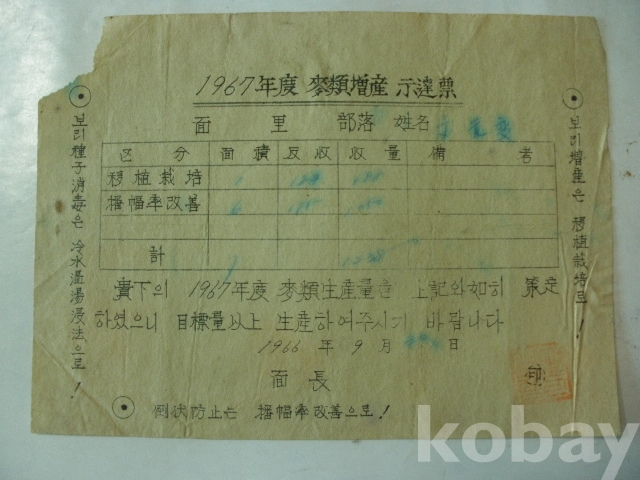 1967年度 麥類增產 示達票
面 里 部落 姓名
區分 面積 反收 收量 備考
移植栽培
播幅率改善
計
貴下의 1967年度 麥類生產量을 上記와如히 策定
하였으니 目標量以上 生產하여주시기 바랍니다
1966 年 9月 日
面長 印
◉ 보리種子消毒은 冷水溫湯浸法으로!
◉ 보리增產은 移植栽培로!
◉ 倒伏防止는 播幅率改善으로!
kobay